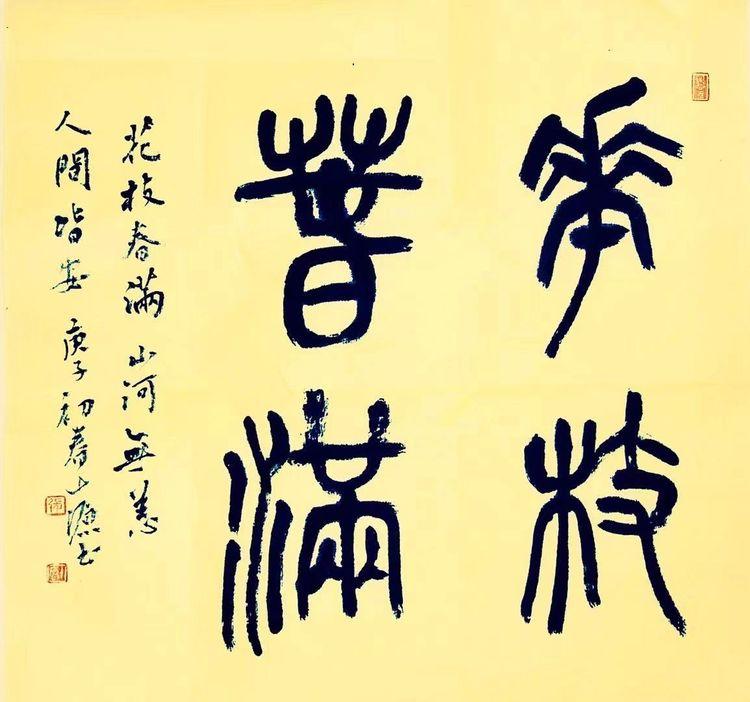 華枝
春滿
花枝春滿 山河無恙
人間皆安 庚子初春